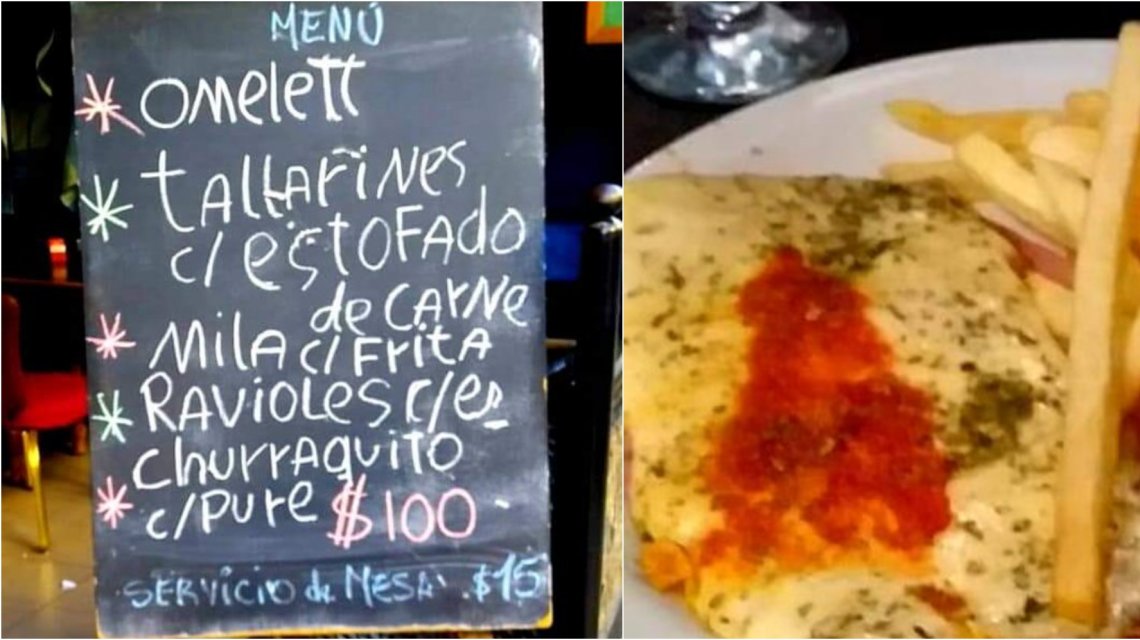 MENÚ
* omelett
* tallarines
c/estofado
de carne
* Mila c/frita
* Ravioles c/es
churraquito
* c/pure $100
Servicio de Mesa $15